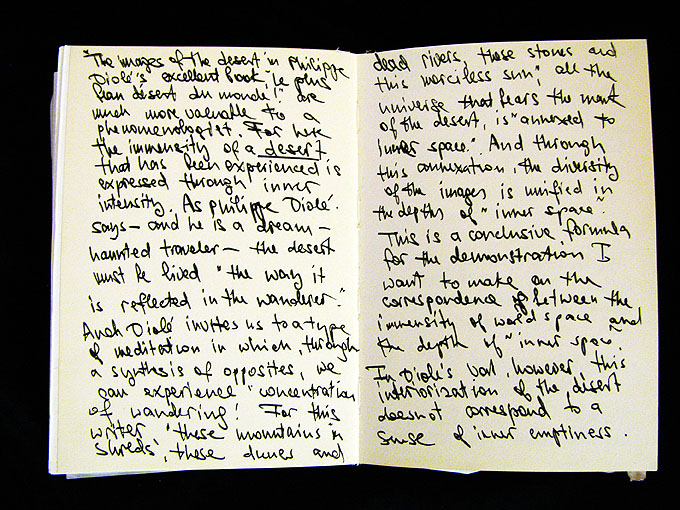 "The images of the desert in Philippe
Diolé's excellent book "Le plus
beau désert du monde!" are
much more valuable to a
phenomenologist. For here
the immensity of a desert
that has been experienced is
expressed through inner
intensity. As Philippe Diolé.
says – and he is a dream –
haunted traveler – the desert
must be lived "the way it
is reflected in the wanderer."
And Diolé invites us to a type
of meditation in which, through
a synthesis of opposites, we
can experience "concentration
of wandering! For this
writer "these mountains in
shreds, these dunes and
dead rivers, these stones and
this merciless sun", all the
universe that bears the mark
of the desert, is "annexed to
inner space". And through
this annexation, the diversity
of the images is unified in
the depths of "inner space".
This is a conclusive formula
for the demonstration I
want to make on the
correspondence between the
immensity of world space and
the depth of "inner space".
In Diolé's, however, this
interiorization of the desert
does not correspond to a
sense of inner emptiness.